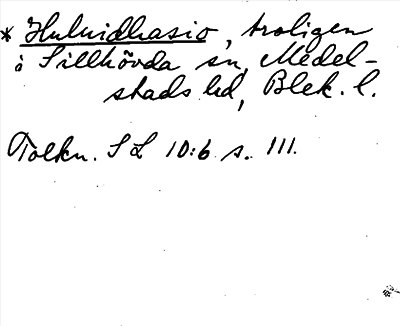 * Hulvidhasio, troligen
i Sillhövda sn, Medel-
stads hd, Blek. l.
Tolkn. SL 10:6 s. 111.